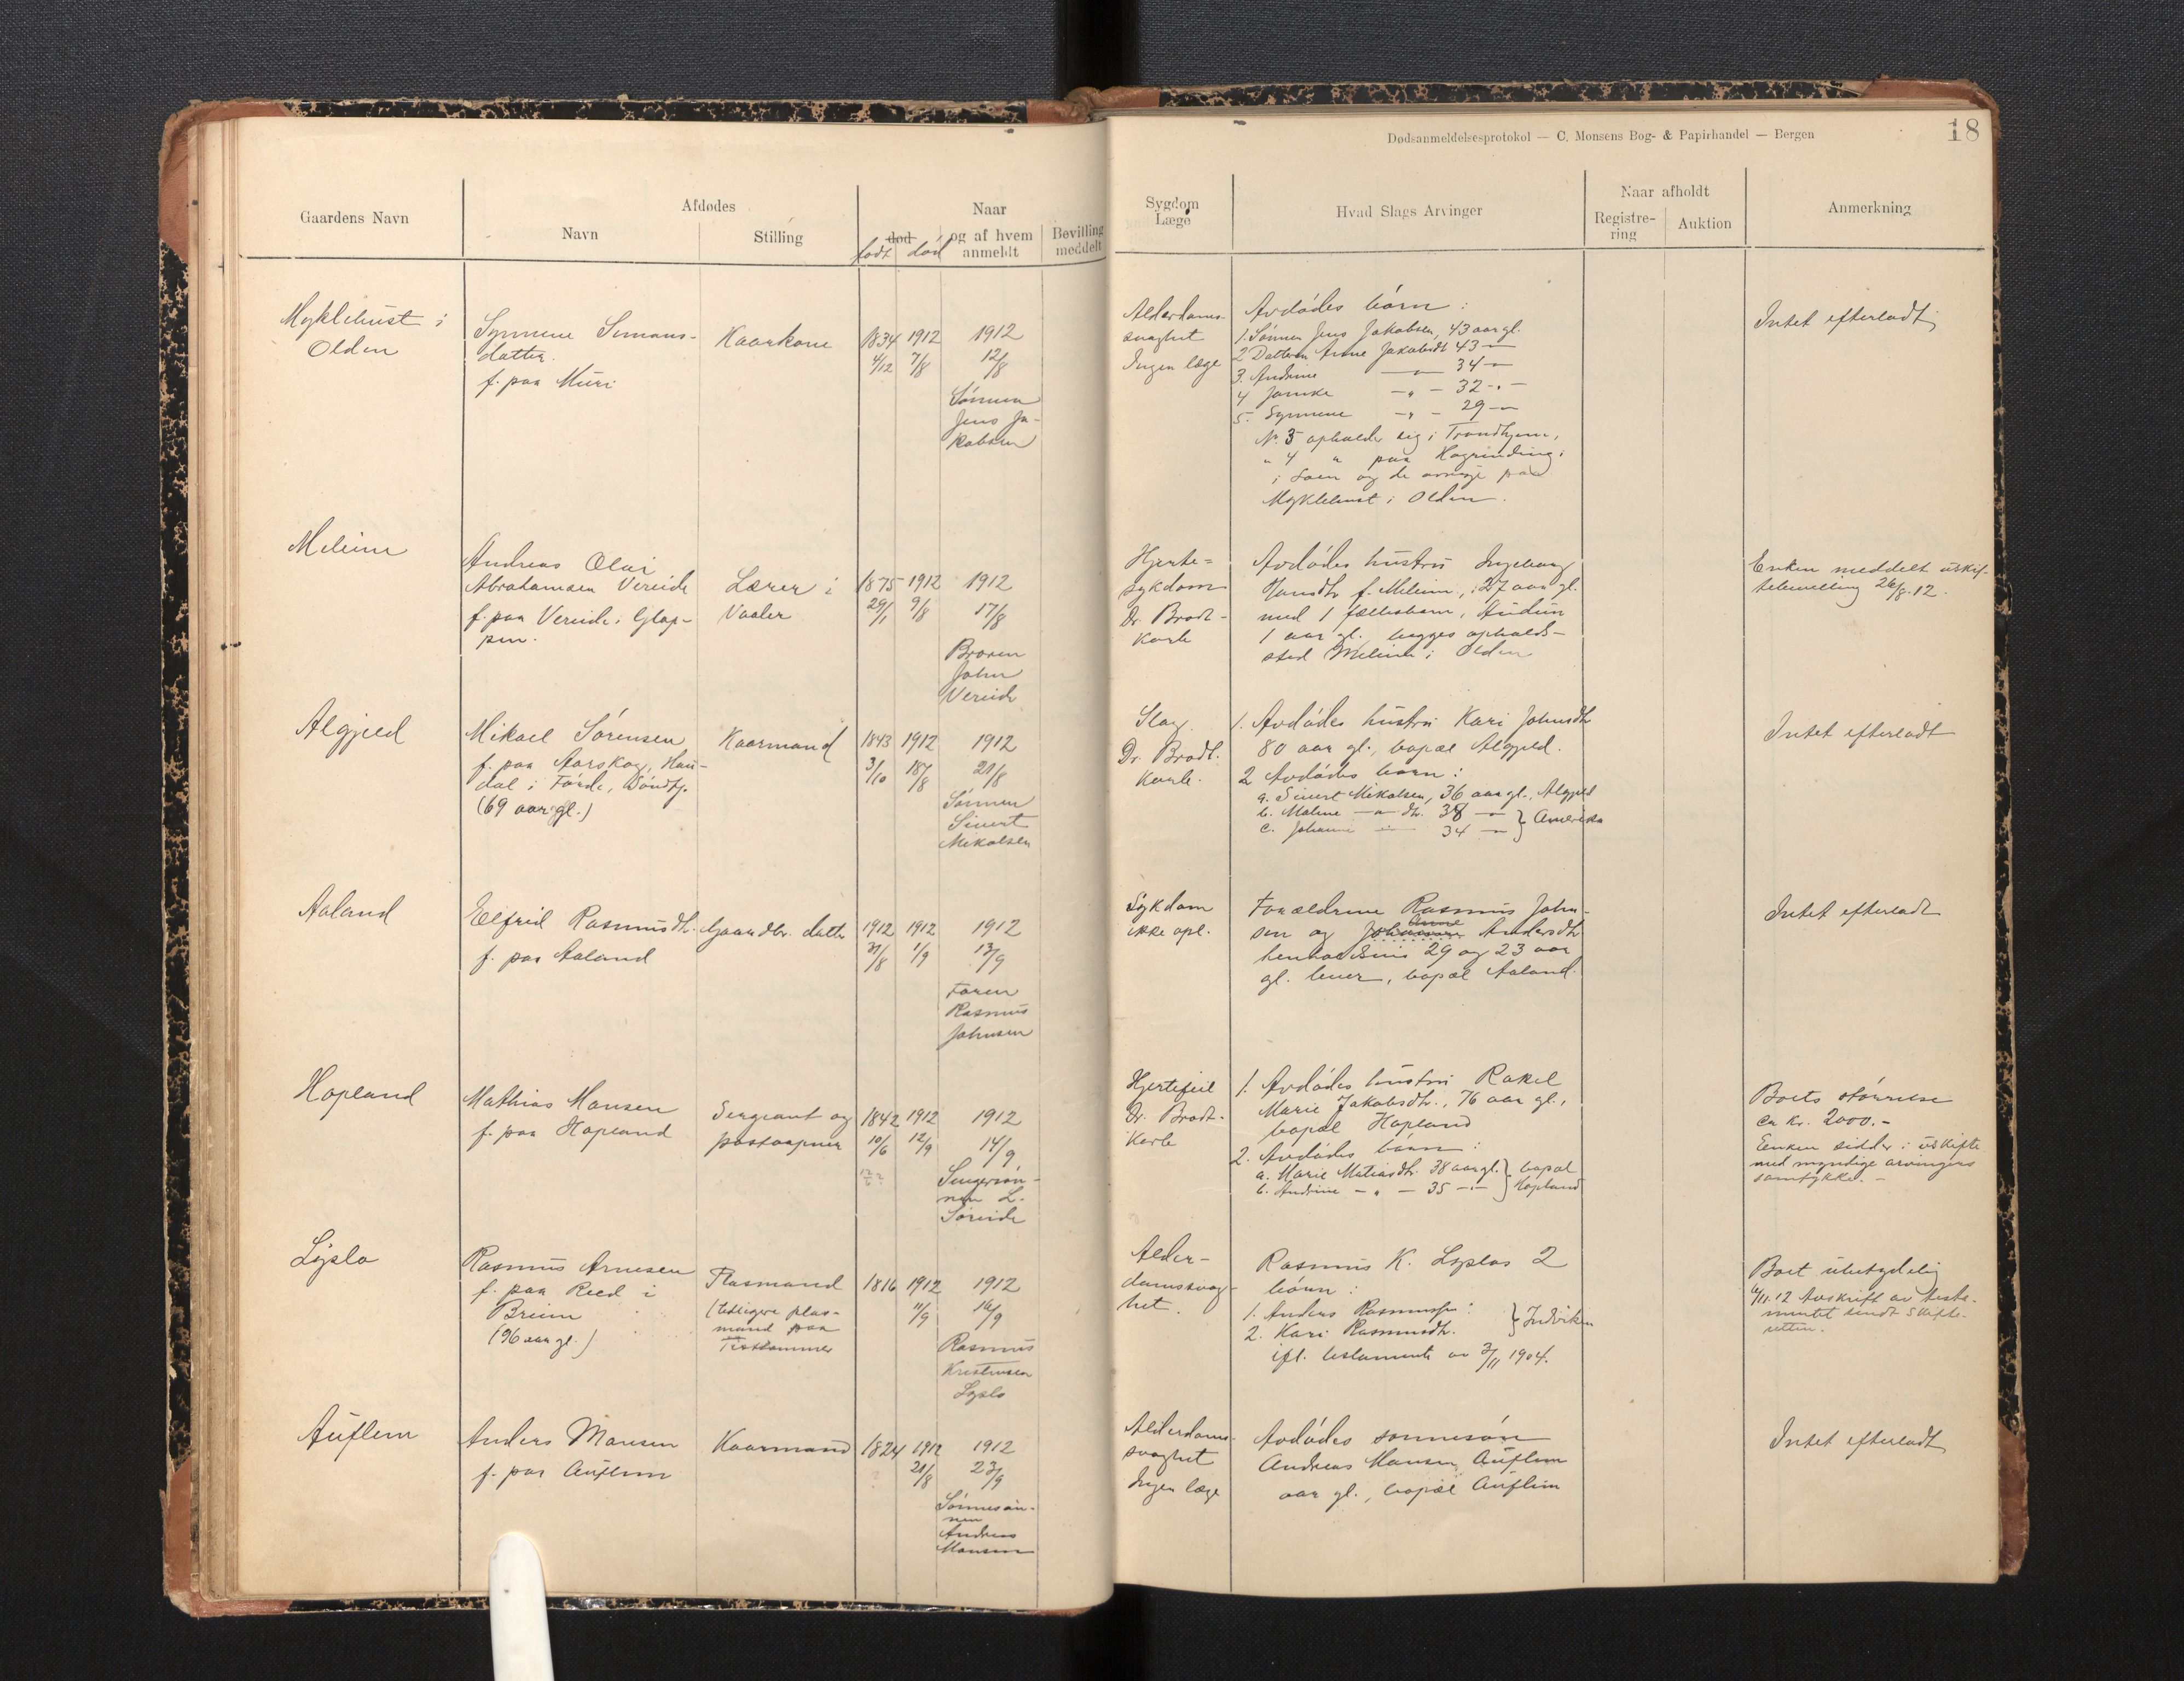 Dødsanmeldelsesprotokol — C. Monsens Bog- & Papirhandel — Bergen
18
Gaardens Navn
Afdødes
Navn
Stilling
Naar
død
født død
og af hvem
anmeldt
Bevilling
meddelt
Sygdom
Læge
Hvad Slags Arvinger
Naar afholdt
Registre-
ring
Auktion
Anmerkning
Myklebust i
Olden
Synneve Simons-
datter.
f. paa Muri
Kaarkone
1834 4/12
1912 7/8
1912
12/8
Sønnen
Jens Ja-
kobsen
Alderdoms-
svaghet
Ingen læge
Avdødes børn :
1. Sønnen Jens Jakobsen, 43 aar gl.
2 Datteren Anne Jakobsdt 43 —
3. Andrine — 34 —
4 Jamke — „ — 32 - . -
5. Synneve — „ — 29 —
Nr. 3 opholder sig i Trondhjem,
„ 4 „ paa
i Loen og de øvrige paa
Myklebust i Olden.
Intet efterladt
Melheim
Andreas Olai
Abrahamsen Vereide
f. paa Vereide i Glop-
pen.
Lærer i
Vaaler
1875 29/1
1912 9/8
1912
17/8
Broren
John
Vereide
Hjerte-
sykdom
Dr. Brodt-
korb
Avdødes hustru Ingeborg
Hansdtr f. Meleim, 27 aar gl.
med 1 fællesbarn, Audun
1 aar gl. begges opholds-
sted Meleim i Olden
Enken meddelt uskif-
tebevilling 26/8.12.
Algjeld
Mikael Sørensen
f. paa Aarskog, Hau-
dal i Førde, Søndfj.
(69 aar gl.)
Kaarmand
1843 3/10
1912 18/8
1912
21/8
Sønnen
Sivert
Mikalsen
Slag
Dr. Brodt-
korb.
1. Avdødes hustru Kari Johnsdtr
80 aar gl., bopæl Algjeld.
2 Avdødes børn :
a. Sivert Mikalsen, 36 aar gl., Algjeld
b. Maline — „ — dtr. 38 —
c. Johanne — 34 — } Amerika
Intet efterladt
Aaland
Elfrid Rasmusdtr.
f. paa Aaland
Gaardbr. datter
1912 31/8
1912 1/9
1912
13/9
Faren
Rasmus
Johnsen
Sykdom
ikke opl.
Forældrene Rasmus John-
sen og Johanne Anne Andersdtr
henholdsvis 29 og 23 aar
gl. lever, bopæl Aaland.
Intet efterladt
Hopland
Mathias Monsen
f. paa Hopland
Sergeant og
postaapner
1842 10/6
1912 12/9
1912
14/9
nen L.
Søreide
Hjertefeil
Dr. Brodt-
korb
1. Avdødes hustru Rakel
Marie Jakobsdtr., 76 aar gl.,
bopæl Hopland
2. Avdødes børn :
a. Marie Matiasdtr. 38 aar gl. } bopæl
b. Andrine — „ — 35 — } Hopland
Boets størrelse
ca kr. 2000.-
Enken sidder i uskifte
med myndige arvingers
samtykke. -
Lyslo
Rasmus Arnesen
f. paa Reed i
Breim
(96 aar gl.)
Plasmand
(tidligere plas-
mand paa
1816
1912 11/9
1912
16/9
Rasmus
Kristensen
Lyslo
Alder-
domssvag-
het.
Rasmus K. Lyslos 2
børn :
1. Anders Rasmussen :
2. Kari Rasmusdtr. } Indviken
ifl. testamente av 3/11 1904.
Boet ubetydelig
6/11.12 Avskrift av testa-
mentet sendt skifte-
retten.
Auflem
Anders Monsen
f. paa Auflem
Kaarmand
1824 ?
1912 21/8
1912
23/9
Sønnesøn-
nen
Andreas
Monsen
Alderdoms-
svaghet
Ingen læge
Avdødes sønnesøn
Andreas Monsen Auflem
aar gl., bopæl Auflem
Intet efterladt